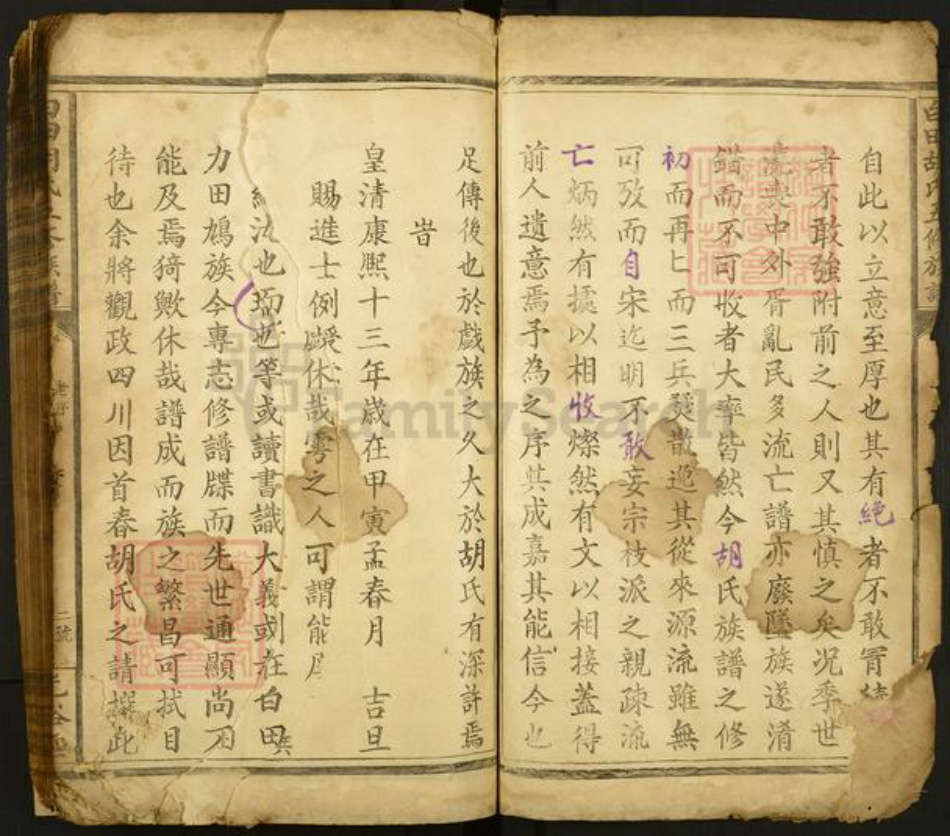 白田胡氏五修族譜
自此以立意至厚也其有絕者不敢冐續
者不敢強附前之人則又其慎之矣况季世
喪中外胥亂民多流亡譜亦廢墜族遂淆
錯而不可收者大率皆然今胡氏族譜之修
初而再匕而三兵燹散逸其從來源流雖無
可攷而自宋迄明不敢妄宗枝派之親疎流
亡炳然有據以相收燦然有文以相接蓋得
前人遺意焉予為之序其成嘉其能信今也
足傳後也於戲族之久大於胡氏有深許焉
旹
皇清康熈十三年歲在甲寅孟春月 吉旦
賜進士例
休哉
之人可謂能
法也
等或讀書識大義或在白田
力田鳩族今專志修譜牒而先世通顯尚不
能及焉猗歟休哉譜成而族之繁昌可拭目
待也余將觀政四川因首春胡氏之請撰此
二號
FamilySearch